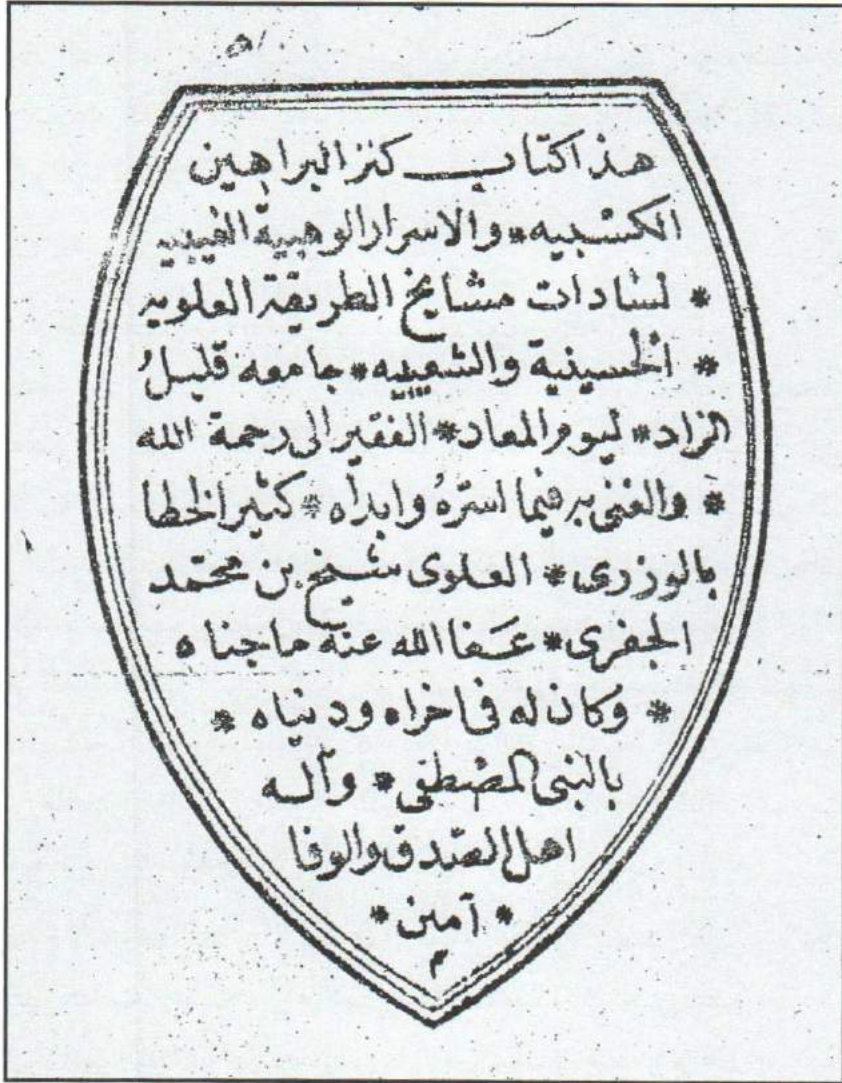 هذا كتاب كنز البراهين
الكسبيه * والاسرار الوهبية الغيبيه
* لسادات مشايخ الطريقة العلويه
* الحسينية والشعيبيه * جامعه قليلُ
الزاد * ليوم المعاد * الفقير الى رحمة الله
* والغنى به فيما اسرّهُ وابداه * كثير الخطا
بالوزرى * العلوى شيخ بن محمّد
الجفرى * عَفا الله عنه ماجناه
* وكان له فى اخراه ودنياه *
بالنبى المصطفى * وآله
اهل الصّدق والوفا
* آمين *
م